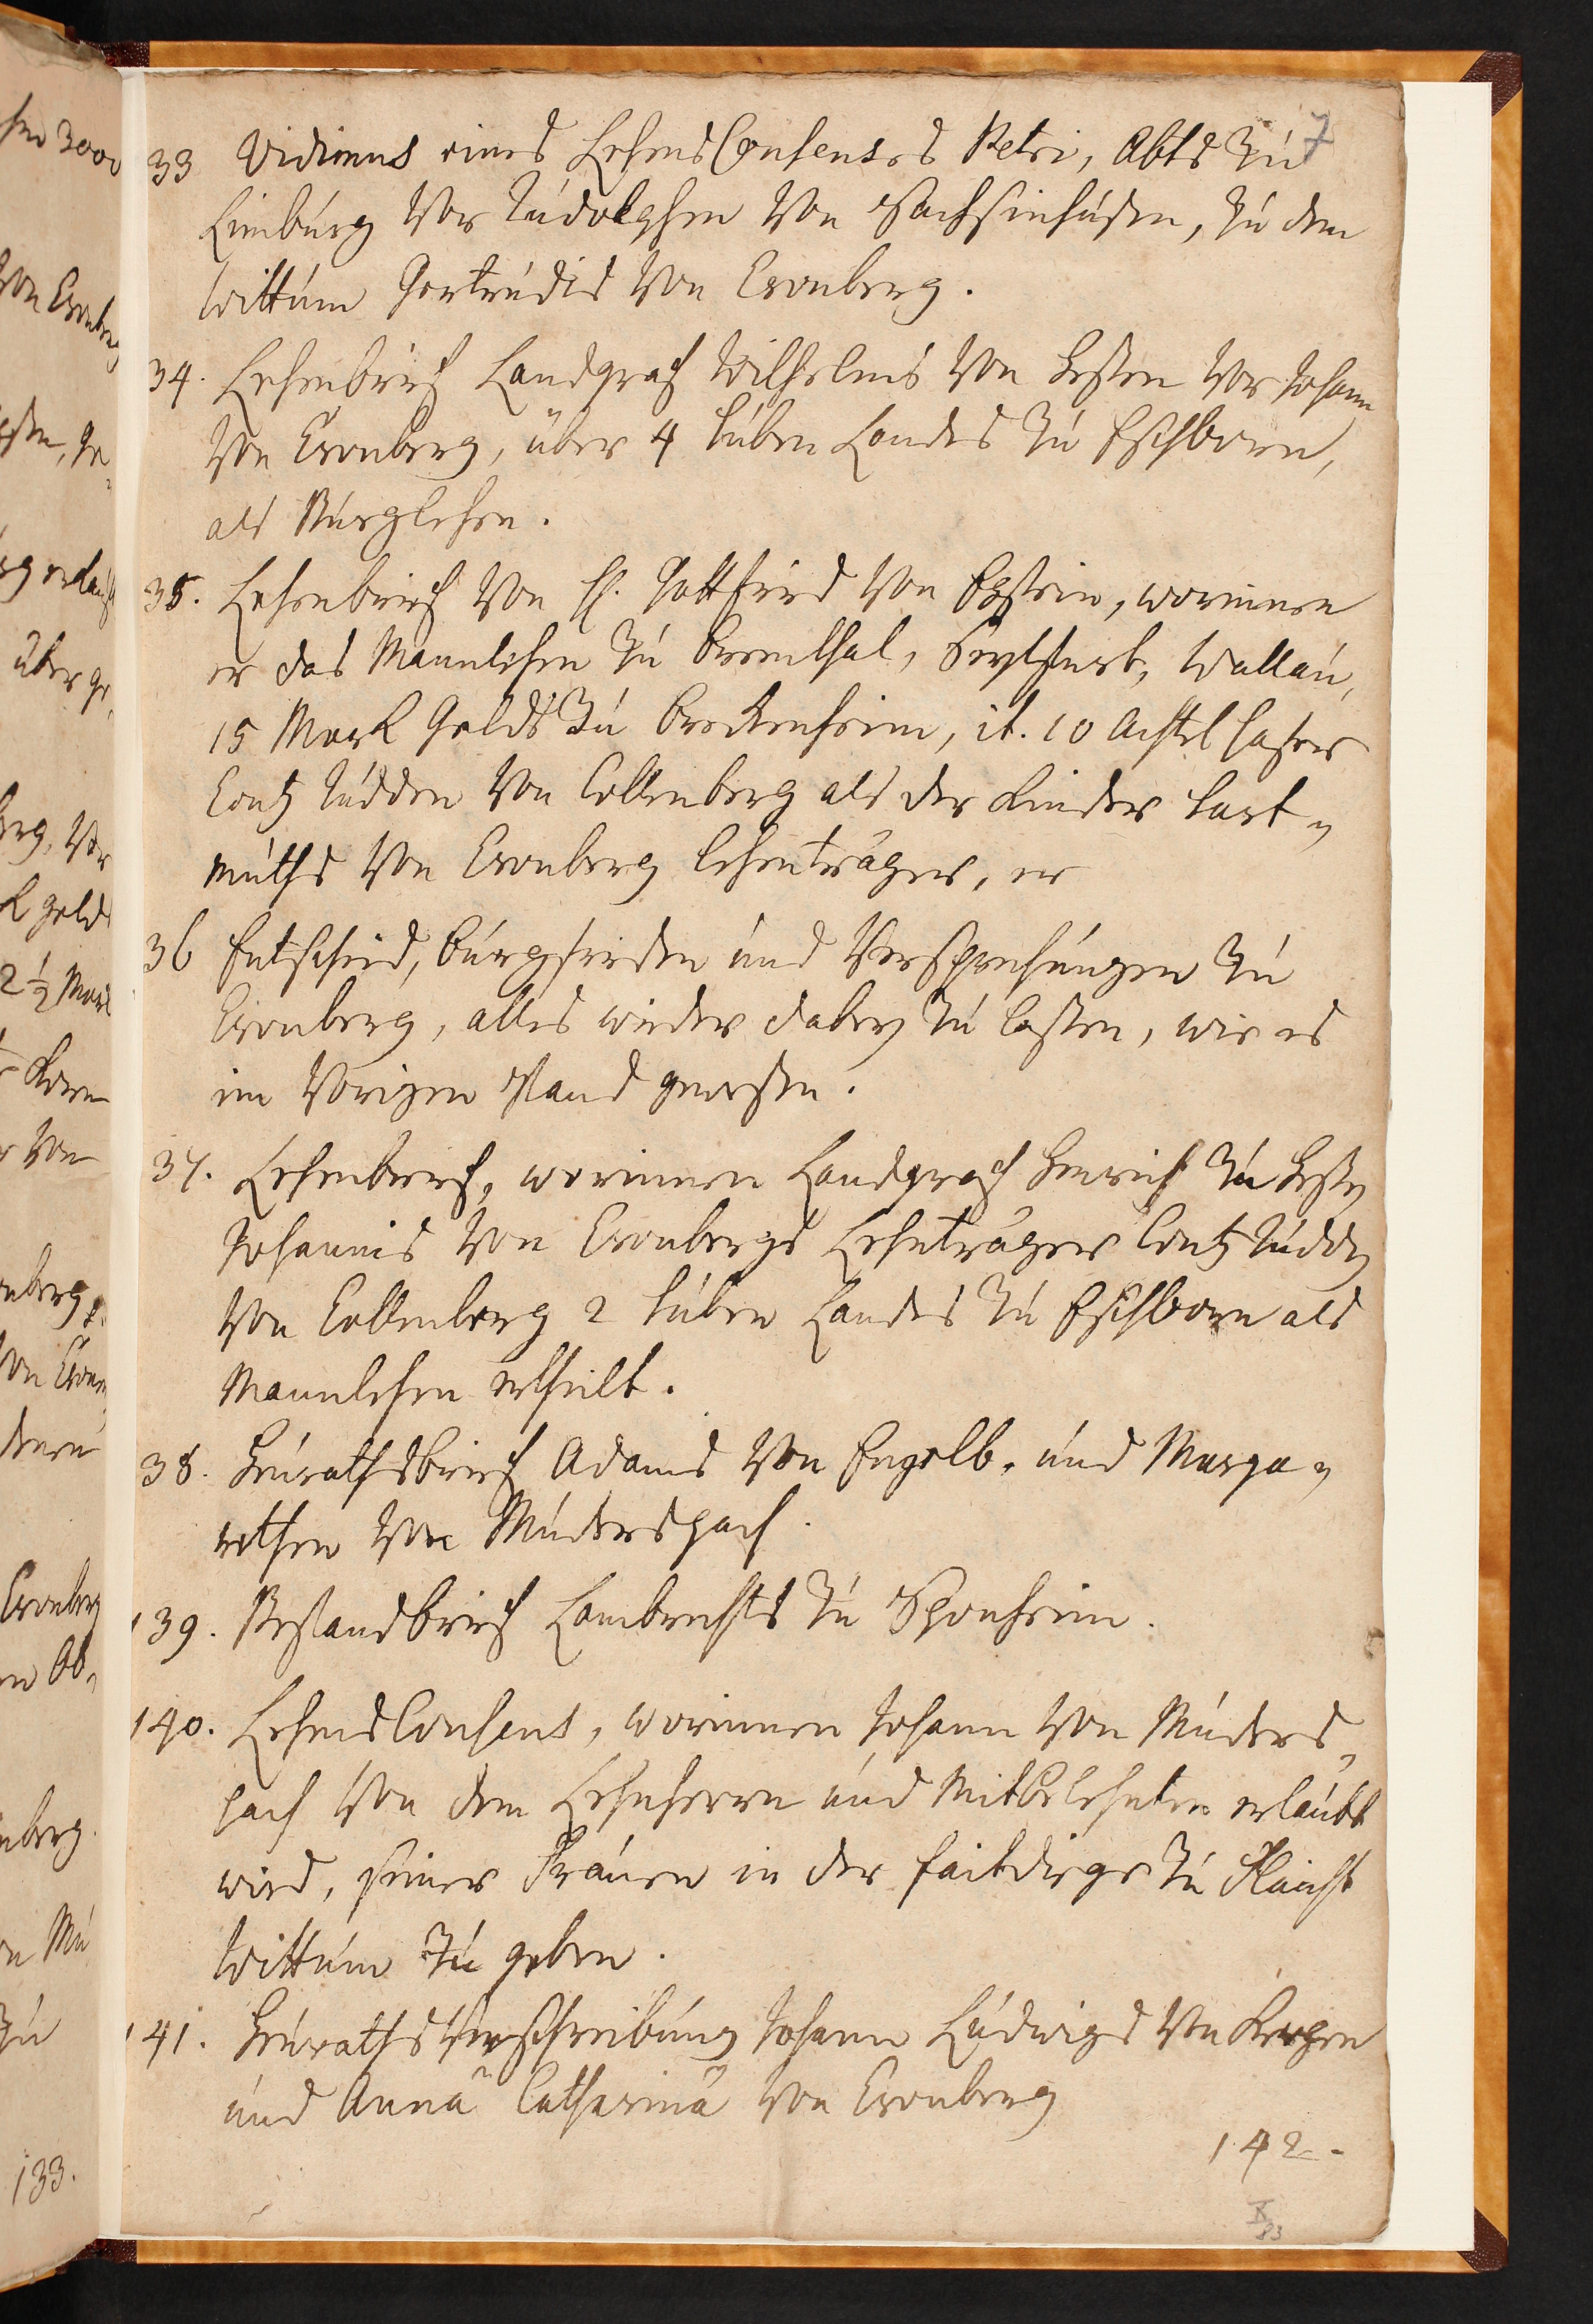 7
33 Vidimus eines LehensConsenses Petri, Abts zu
Limburg vor Rudolphen von Sachsenhusen, zu dem
Wittum Gertrudis von Cronberg.
34. Lehenbrief Landgraf Wilhelms von Heßen vor Johann
von Cronberg, über 4 Huben Landes zu Eschborn,
als Burglehen.
35. Lehenbrief von H. Gottfried von Epstein, worinnen
er das Mannlehen zu Bremthal, Wallau,
15 Mark Gelds zu Breckenheim, it. 10 Achtel Hafer
Contz Rüdden von Collenberg als der Kinder Hart¬
muths von Cronberg Lehenträger, er
36 Entscheid, Burgfrieden und Versprechungen zu
Cronberg, alles wieder dabey zu laßen, wie es
im vorigen Stand gewesen.
37. Lehenbrief, worinnen Landgraf Henrich zu Heßen
Johannis von Cronbergs Lehnträger Contz Rüdden
von Collenberg 2 Huben Landes zu Eschborn als
Mannlehen ertheilt.
38. Heurathsbrief Adams von Engelb. und Marga¬
rethen von Müderspach.
139. Bestandbrief Lambrechts zu Sponheim.
140. LehensConsens, worinnen Johann von Müders¬
pach von dem Lehnherrn und Mitbelehnten erlaubt
wird, seiner Frauen in der zu
Wittum zu geben.
141. HeurathsVerschreibung Johann Ludwigs von Kerpen
und Annä Catharinä von Cronberg
142.